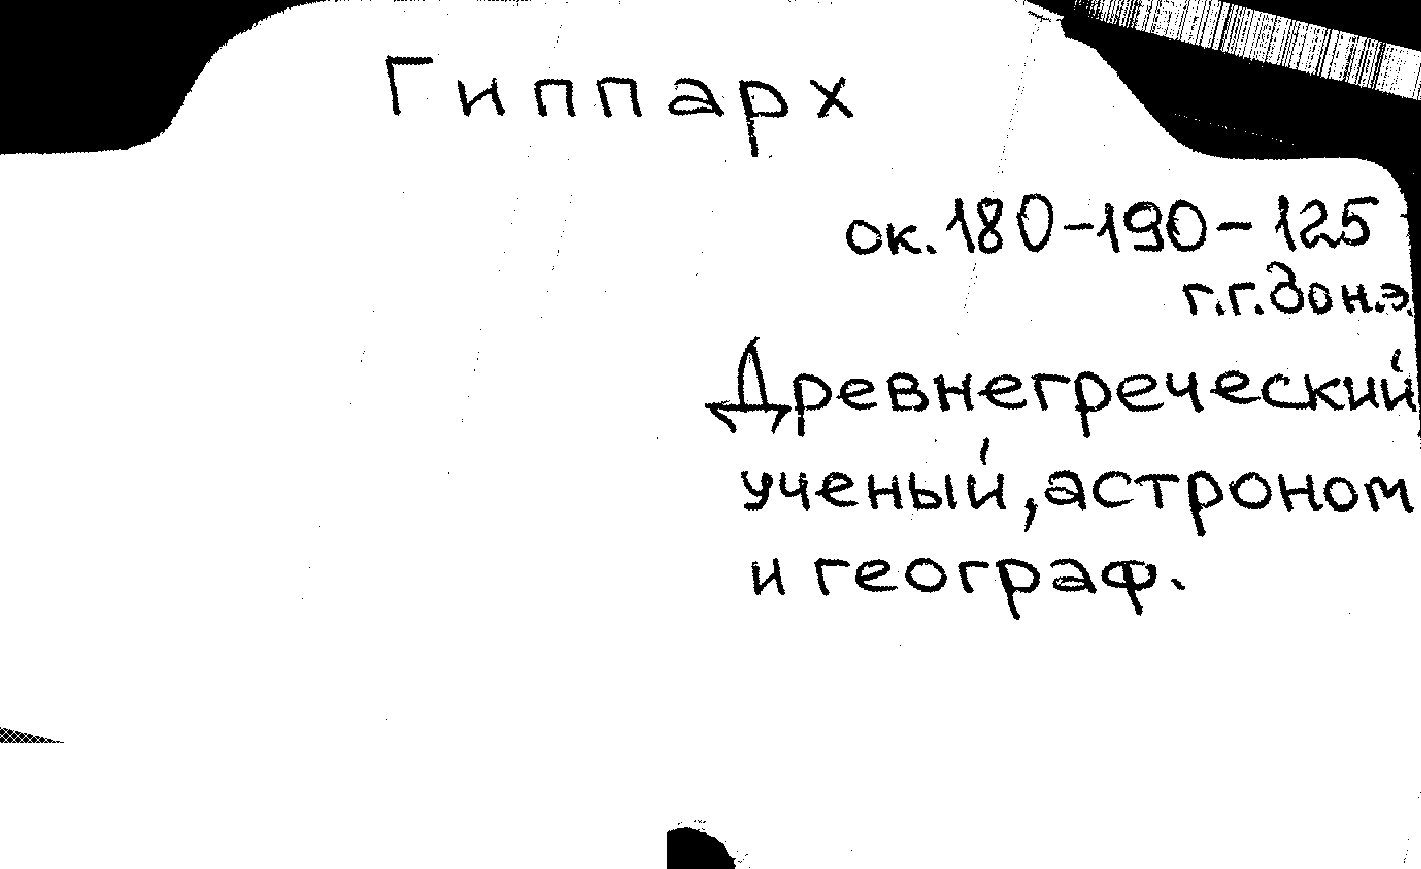 Гиппарх
ок. 180-190-125
г.г. до н.э.
Древнегреческий
ученый, астроном
и географ.